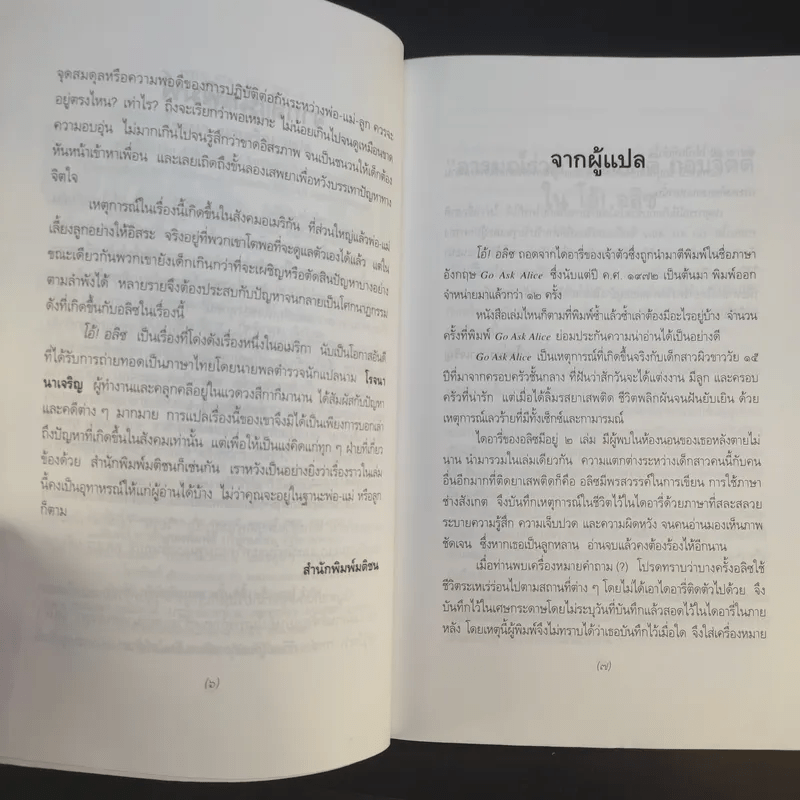 จุดสมดุลหรือความพอดีของการปฏิบัติต่อกันระหว่างพ่อ-แม่-ลูก ควรจะ
อยู่ตรงไหน? เท่าไร? ถึงจะเรียกว่าพอเหมาะ ไม่น้อยเกินไปจนดูเหมือนขาด
ความอบอุ่น ไม่มากเกินไปจนรู้สึกว่าขาดอิสรภาพ จนเป็นชนวนให้เด็กต้อง
หันหน้าเข้าหาเพื่อน และเลยเถิดถึงขั้นลองเสพยาเพื่อหวังบรรเทาปัญหาทาง
จิตใจ
เหตุการณ์ในเรื่องนี้เกิดขึ้นในสังคมอเมริกัน ที่ส่วนใหญ่แล้วพ่อ-แม่
เลี้ยงลูกอย่างให้อิสระ จริงอยู่ที่พวกเขาโตพอที่จะดูแลตัวเองได้แล้ว แต่ใน
ขณะเดียวกันพวกเขายังเด็กเกินกว่าที่จะเผชิญหรือตัดสินปัญหาบางอย่าง
ตามลำพังได้ หลายรายจึงต้องประสบกับปัญหาจนกลายเป็นโศกนาฏกรรม
ดังที่เกิดขึ้นกับอลิซในเรื่องนี้
โอ้! อลิซ เป็นเรื่องที่โด่งดังเรื่องหนึ่งในอเมริกา นับเป็นโอกาสอันดี
ที่ได้รับการถ่ายทอดเป็นภาษาไทยโดยนายพลตำรวจนักแปลนาม โรจนา
นาเจริญ ผู้ทำงานและคลุกคลีอยู่ในแวดวงสีกากีมานาน ได้สัมผัสกับปัญหา
และคดีต่าง ๆ มากมาย การแปลเรื่องนี้ของเขาจึงมิได้เป็นเพียงการบอกเล่า
ถึงปัญหาที่เกิดขึ้นในสังคมเท่านั้น แต่เพื่อให้เป็นแง่คิดแก่ทุก ๆ ฝ่ายที่เกี่ยว
ข้องด้วย สำนักพิมพ์มติชนก็เช่นกัน เราหวังเป็นอย่างยิ่งว่าเรื่องราวในเล่ม
นี้คงเป็นอุทาหรณ์ให้แก่ผู้อ่านได้บ้าง ไม่ว่าคุณจะอยู่ในฐานะพ่อ-แม่ หรือลูก
ก็ตาม
สำนักพิมพ์มติชน
(๖)
จากผู้แปล
โอ้! อลิซ ถอดจากไดอารี่ของเจ้าตัวซึ่งถูกนำมาตีพิมพ์ในชื่อภาษา
อังกฤษ Go Ask Alice ซึ่งนับแต่ปี ค.ศ. ๑๙๗๒ เป็นต้นมา พิมพ์ออก
จำหน่ายมาแล้วกว่า ๑๒ ครั้ง
หนังสือเล่มไหนก็ตามที่พิมพ์ซ้ำแล้วซ้ำเล่าต้องมีอะไรอยู่บ้าง จำนวน
ครั้งที่พิมพ์ Go Ask Alice ย่อมประกันความน่าอ่านได้เป็นอย่างดี
Go Ask Alice เป็นเหตุการณ์ที่เกิดขึ้นจริงกับเด็กสาวผิวขาววัย ๑๕
ปีที่มาจากครอบครัวชั้นกลาง ที่ฝันว่าสักวันจะได้แต่งงาน มีลูก และครอบ
ครัวที่น่ารัก แต่เมื่อได้ลิ้มรสยาเสพติด ชีวิตพลิกผันจนฝันยับเยิน ด้วย
เหตุการณ์เลวร้ายที่มีทั้งเซ็กซ์และกามารมณ์
ไดอารี่ของอลิซมีอยู่ ๒ เล่ม มีผู้พบในห้องนอนของเธอหลังตายไม่
นาน นำมารวมในเล่มเดียวกัน ความแตกต่างระหว่างเด็กสาวคนนี้กับคน
อื่นอีกมากที่ติดยาเสพติดก็คือ อลิซมีพรสวรรค์ในการเขียน การใช้ภาษา
ช่างสังเกต จึงบันทึกเหตุการณ์ในชีวิตไว้ในไดอารี่ด้วยภาษาที่สละสลวย
ระบายความรู้สึก ความเจ็บปวด และความผิดหวัง จนคนอ่านมองเห็นภาพ
ชัดเจน ซึ่งหากเธอเป็นลูกหลาน อ่านจบแล้วคงต้องร้องไห้อีกนาน
เมื่อท่านพบเครื่องหมายคำถาม (?) โปรดทราบว่าบางครั้งอลิซใช้
ชีวิตระเหเร่ร่อนไปตามสถานที่ต่าง ๆ โดยไม่ได้เอาไดอารี่ติดตัวไปด้วย จึง
บันทึกไว้ในเศษกระดาษโดยไม่ระบุวันที่บันทึกแล้วสอดไว้ในไดอารี่ในภาย
หลัง โดยเหตุนี้ผู้พิมพ์จึงไม่ทราบได้ว่าเธอบันทึกไว้เมื่อใด จึงใส่เครื่องหมาย
(๗)